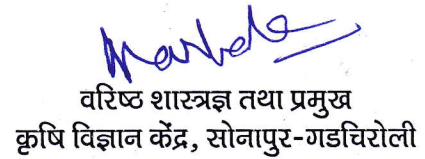 वरिष्ठ शास्त्रज्ञ तथा प्रमुख
कृषि विज्ञान केंद्र, सोनापुर-गडचिरोली